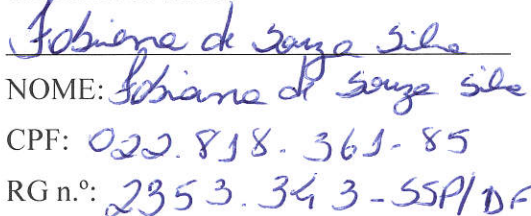 Fabiana de Souza Silva
NOME: Fabiana de Souza Silva
CPF: 022.818.361-85
RG n.º: 2353.343-SSP/DF